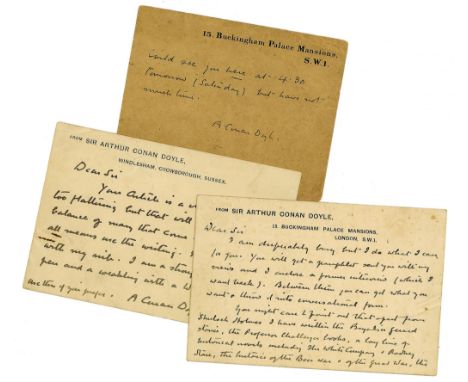 15. Buckingham Palace Mansions,
S.W.1.
Could see you here at 4.30
tomorrow (Saturday) but have not
much time.
A Conan Doyle.
FROM SIR ARTHUR CONAN DOYLE,
WINDLESHAM, CROWBOROUGH, SUSSEX.
Dear Sir
Your Article is a
too flattering but that will
balance of many that
all means use the writing.
with my nib. I am a
pen and a
use this if you prefer. A Conan Doy
FROM SIR ARTHUR CONAN DOYLE,
15, BUCKINGHAM PALACE MANSIONS,
LONDON, S.W.1.
Dear Sir
I am desperately busy but I do what I can
for you. You will get a pamphlet said you will my
views and I enclose a former interview (which I
want back). Between them you can get what you
want & throw it into conversational form.
You might care to point out that apart from
Sherlock Holmes I have written the Brigadier Gerard
stories, the Professor Challenger books, a long line of
historical novels including The White Company & Rodney
Stone, the histories of the Boer War & of the Great War, this